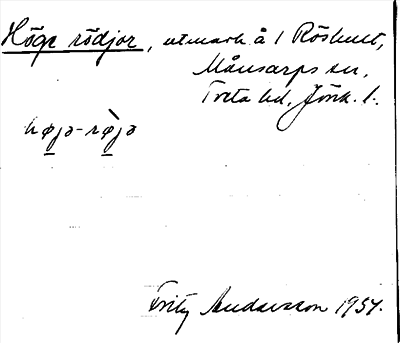 Höge rödjor, utmark å 1 Röshult,
Månsarps sn,
Tveta hd, Jönk. l.
højə-røjə
Fritz Andersson 1934.